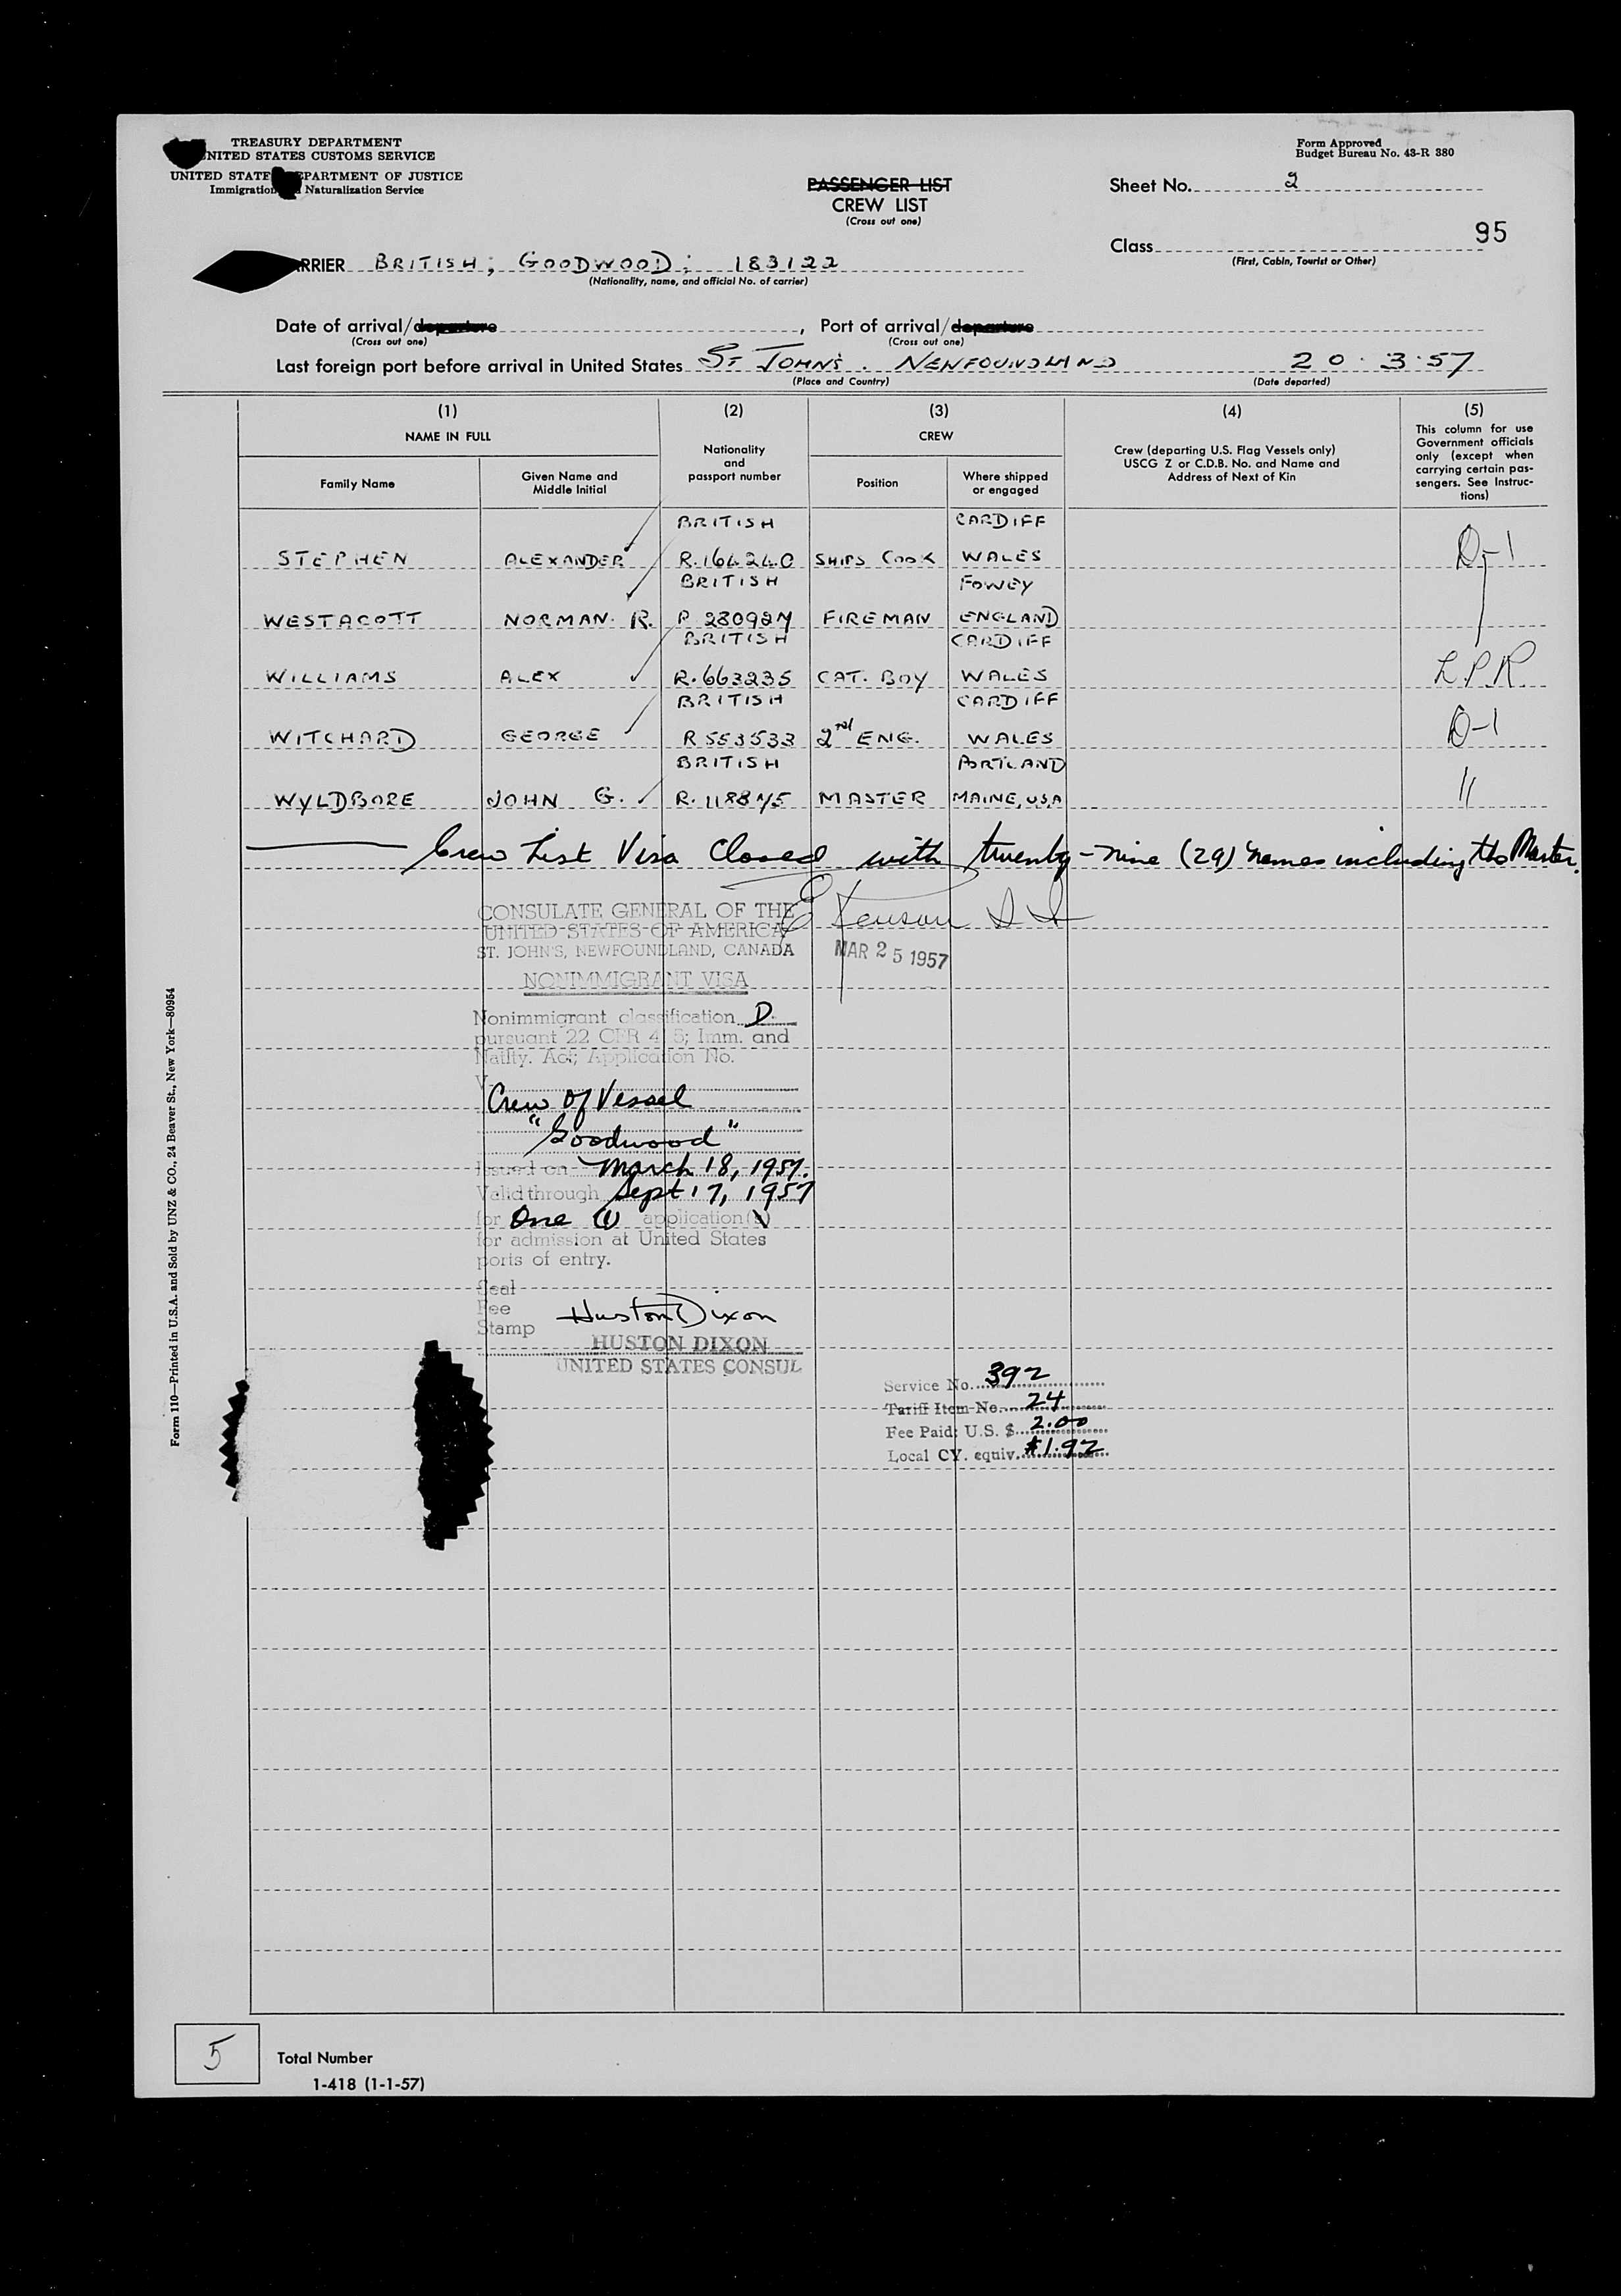 TREASURY DEPARTMENT
UNITED STATES CUSTOMS SERVICE
UNITED STATES DEPARTMENT OF JUSTICE
Immigration and Naturalization Service
Form Approved
Budget Bureau No. 43-R 380
PASSENGER LIST
CREW LIST
(Cross out one)
Sheet No. 2
95
Class
(First, Cabin, Tourist or Other)
RRIER BRITISH; GOODWOOD; 183122
(Nationality, name, and official No. of carrier)
Date of arrival/departure , Port of arrival/departure
(Cross out one) (Cross out one)
Last foreign port before arrival in United States ST JOHN'S. NEWFOUNDLAND 20.3.57
(Place and Country) (Date departed)
(1) (2) (3) (4) (5)
NAME IN FULL
Family Name
Given Name and
Middle Initial
Nationality
and
passport number
CREW
Position
Where shipped
or engaged
Crew (departing U.S. Flag Vessels only)
USCG Z or C.D.B. No. and Name and
Address of Next of Kin
This column for use
Government officials
only (except when
carrying certain pas-
sengers. See Instruc-
tions)
BRITISH CARDIFF
STEPHEN ALEXANDER R.164240 SHIPS COOK WALES D-1
BRITISH FOWEY
WESTACOTT NORMAN. R. FIREMAN ENGLAND
BRITISH CARDIFF
WILLIAMS ALEX R.663235 CAT. BOY WALES L.P.R.
BRITISH CARDIFF
WITCHARD GEORGE R553533 2nd ENG. WALES D-1
BRITISH PORTLAND
WYLDBORE JOHN G. MASTER MAINE, USA "
Crew List Visa Closed with twenty-nine (29) names including the Master.
CONSULATE GENERAL OF THE
UNITED STATES OF AMERICA
ST. JOHN'S, NEWFOUNDLAND, CANADA
MAR 25 1957
NONIMMIGRANT VISA
Nonimmigrant classification D.
pursuant 22 CFR 4 5; Imm. and
Natlty. Act; Application No.
V-
Crew of Vessel
"Goodwood"
Issued on March 18, 1957.
Valid through Sept 17, 1957
for One (1) application(s)
for admission at United States
ports of entry.
Seal
Fee
Stamp
Huston Dixon
HUSTON DIXON
UNITED STATES CONSUL
Service No. 392
Tariff Item No. 24
Fee Paid: U.S. $ 2.00
Local CY. equiv. $1.92
Form 110—Printed in U.S.A. and Sold by UNZ & CO., 24 Beaver St., New York—80954
5
Total Number
1-418 (1-1-57)